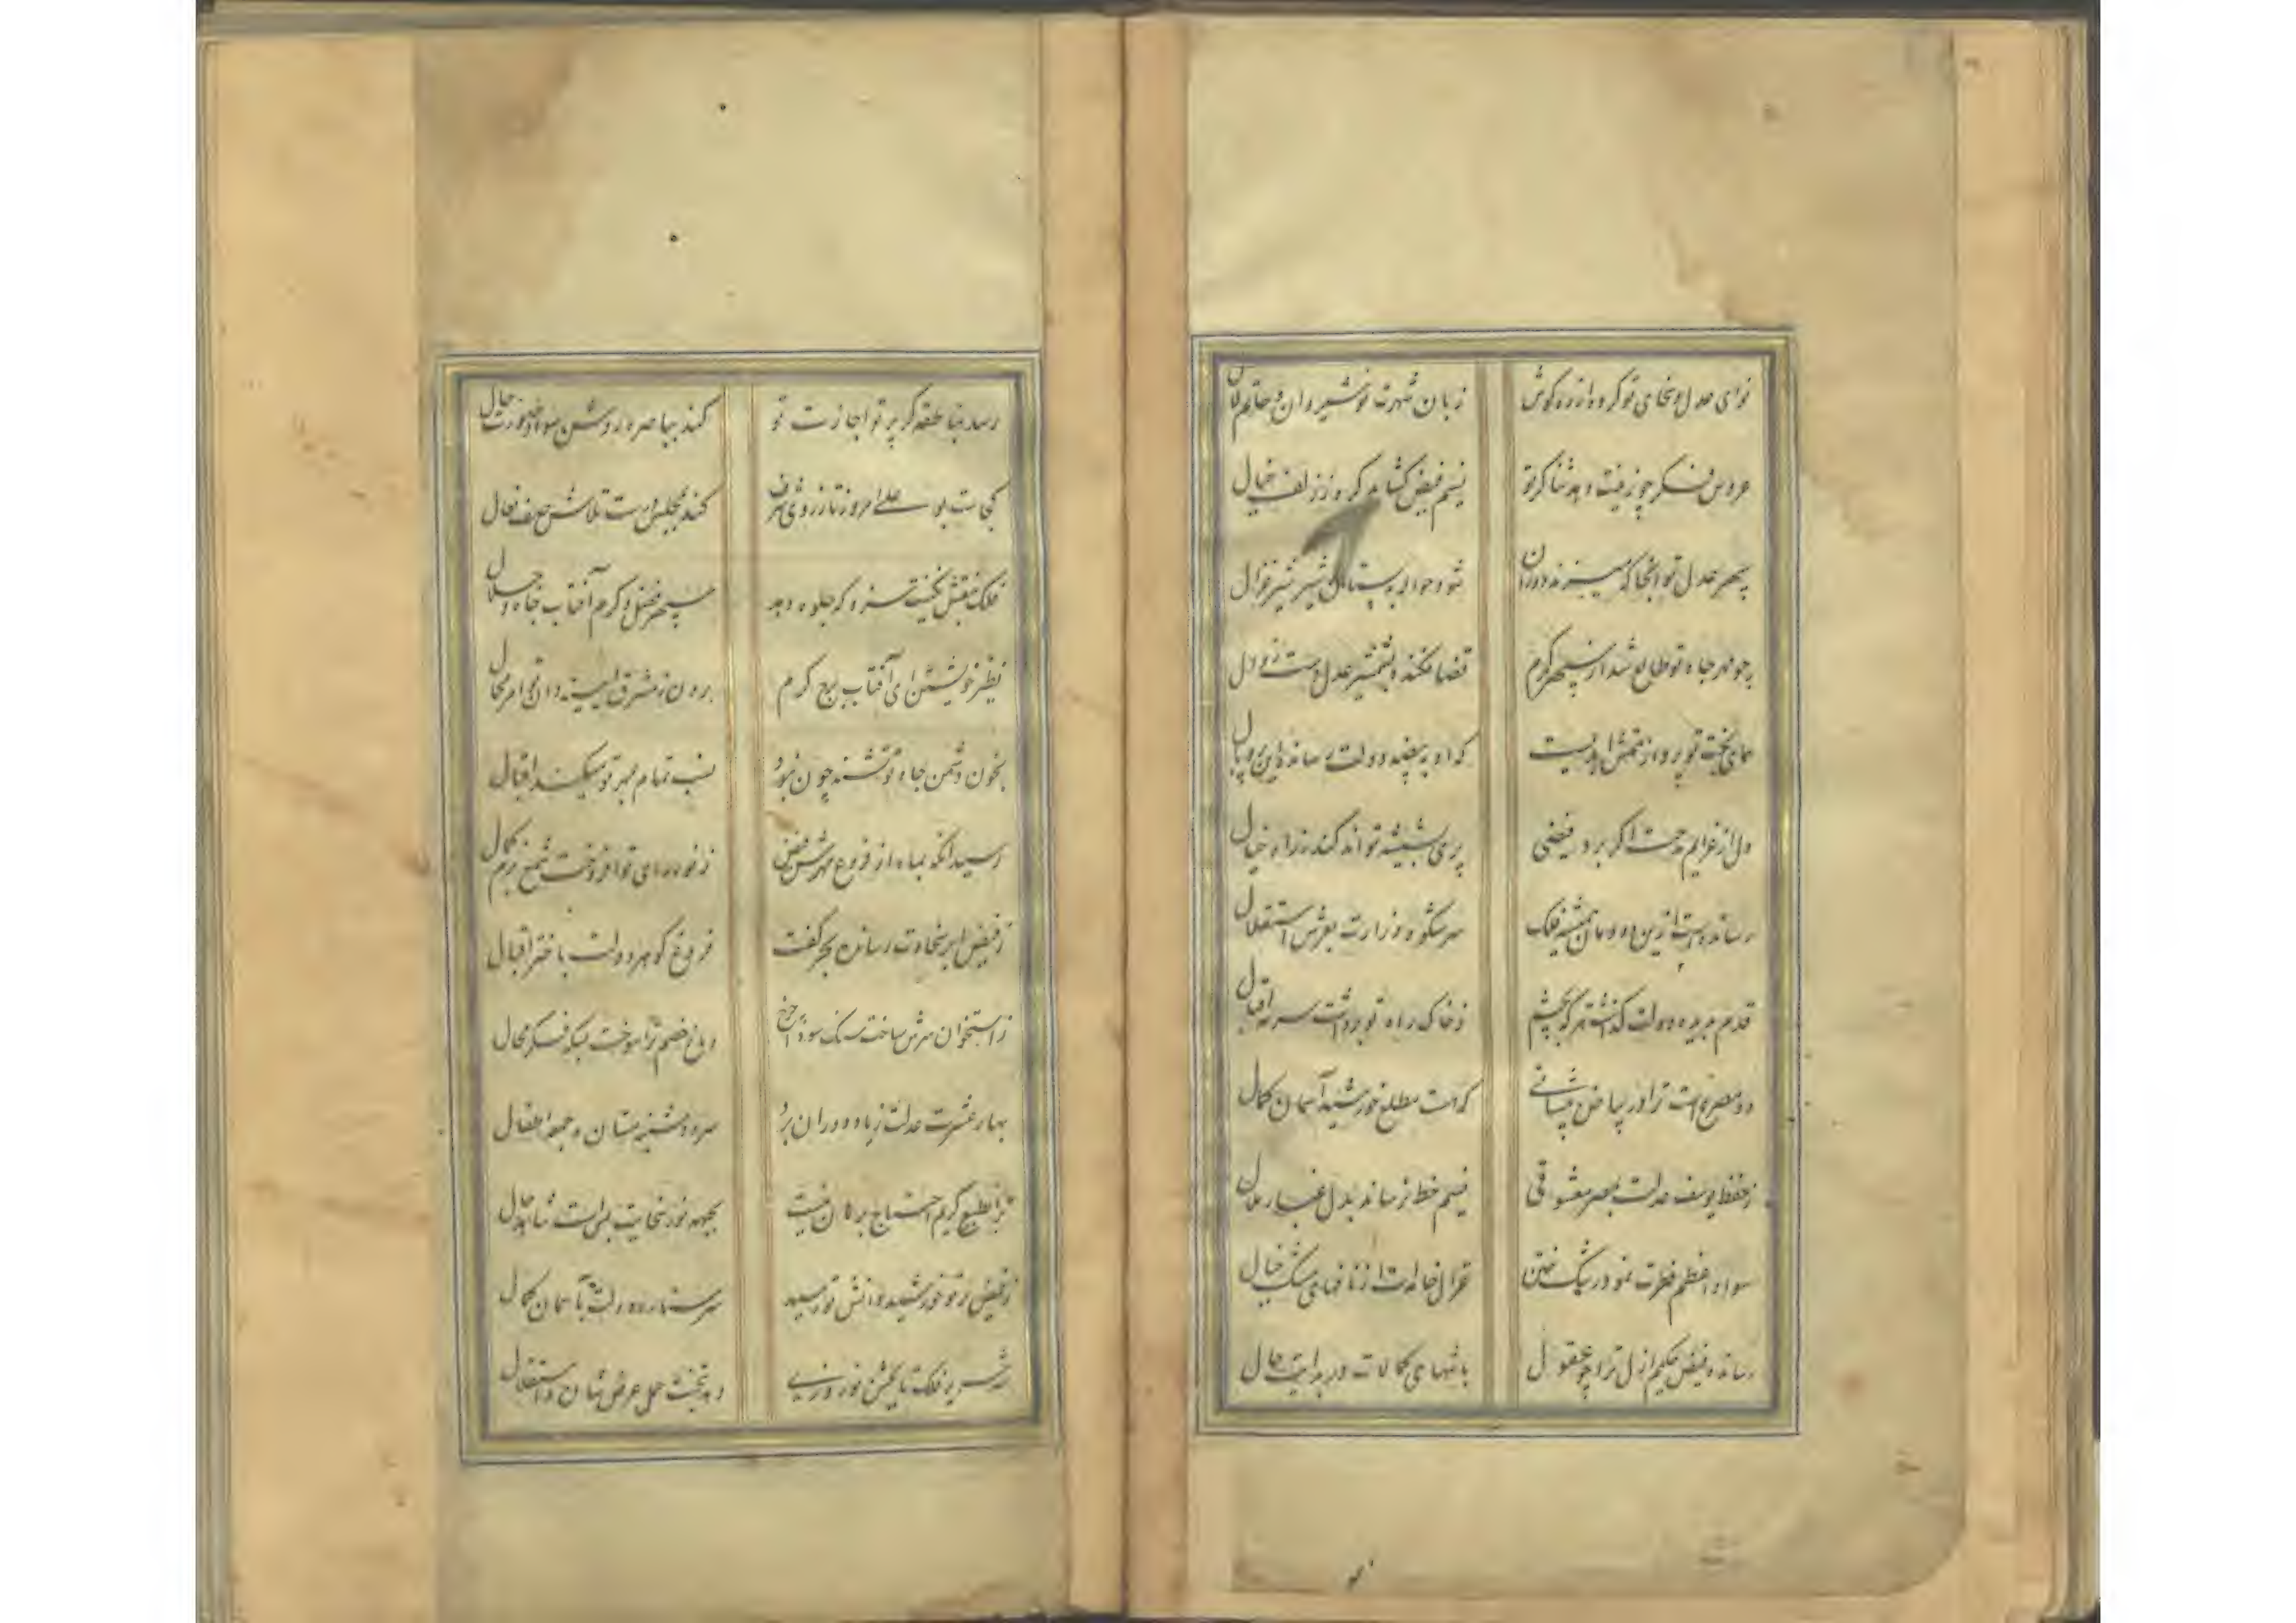 نوای عدل و سخای تو کرده از در گوش
زبان شهرت نوشیروان و حاتم لال
عروس فکر چو زینت دهد ثناگر تو
نسیم فیض کشاید گره ز زلف خیال
سپهر عدل تو آنجا که دوران
شود حواله پستان شیر شیر غزال
چو مهر جاه تو طالع شد از سپهر کرم
قضا فکنده بشمشیر عدل دست زوال
همای بخت تو پرواز
که او به بیضه دولت رسانده این پر و بال
دل از عزایم مدحت اگر برد فیضی
پری بشیشه تواند کند ز راه خیال
رسانده است ازین
سر شکوه وزارت بعرش استقلال
قدم بدیده دولت گذاشت هر که بچشم
ز خاک راه تو برداشت سرمه اقبال
دو مصرع است ترا در بیاض پیشانی
که هست مطلع خورشید آسمان کمال
ز حفظ یوسف عدلت بمصر معشوقی
نسیم خط نرساند بدل غبار ملال
سواد اعظم فطرت نمود رشک ختن
غزال خامه‌ات از نافهای مشک خیال
رسانده فیض حکیم ازل ترا چو عقول
بانتهای کمالات در بدایت حال
رسد بناطقه گر پرتو اجازت تو
کند بباصره روشن سواد صورت حال
کجاست بوعلی امروز تا ز روی شرف
کند بمجلس درست تلاش صف نعال
فلک بنقش نگینت سزد که جلوه دهد
سپهر فضل و کرم آفتاب جاه و جلال
نظیر خویشتن ای آفتاب برج کرم
برون ز مشرق آیینه دان تو امر محال
بخون دشمن جاه تو تشنه چون نبود
نسب تمام بمهر تو میکند اقبال
رسید آنکه بماه از فروغ مهرش فیض
ز نور رای تو افروخت شمع بزم کمال
ز فیض ابر سخاوت رسانده بحر کفت
فروغ گوهر دولت باختر اقبال
ز استخوان سرش ساخت سنگ سوده چرخ
دماغ خصم ترا سوخت بسکه فکر محال
بهار عشرت عدلت ز یاد دوران برد
سرود شنبه مستان و جمعه اطفال
ترا بطبع کریم احتیاج برهان نیست
بجبهه نور سخایت بس است شاهد حال
ز فیض پرتو خورشید دانش تو رسید
سر ستاره دولت بآسمان کمال
شه سریر فلک تا بجشن نوروزی
دهد بتخت حمل عرض شان و استقلال